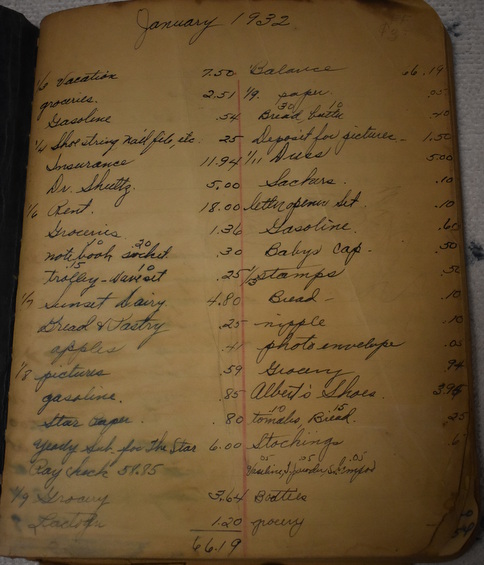 January 1932
1/6 Vacation 7.50
groceries. 2.51
Gasoline .54
1/4 Shoe string nail file, etc. .25
Insurance 11.94
Dr. Shultz 5.00
1/6 Rent. 18.00
Groceries 1.36
10 20
note book socket .30
15 10
trolley .25
1/7 Sunset Dairy 4.80
Bread & Pastry .25
apples .41
1/8 pictures .59
gasoline. .85
Star paper. .80
Yearly Sub. for The Star 6.00
Pay check 58.85
1/9 Grocery 3.64
Lactogen 1.20
66.19
Balance 66.19
1/9. paper. .05
30 10
Bread, butter .40
Deposit for pictures 1.50
1/11 Dues 5.00
Sachars. .10
letter opener set .10
Gasoline.
Babys cap. .50
stamps
Bread .10
nipple .10
photo envelope .05
Grocery .94
Albert's Shoes. 3.95
10 15
tomatoes, Bread. .25
Stockings
.05 .05 .05
Vaseline
Booties
grocery